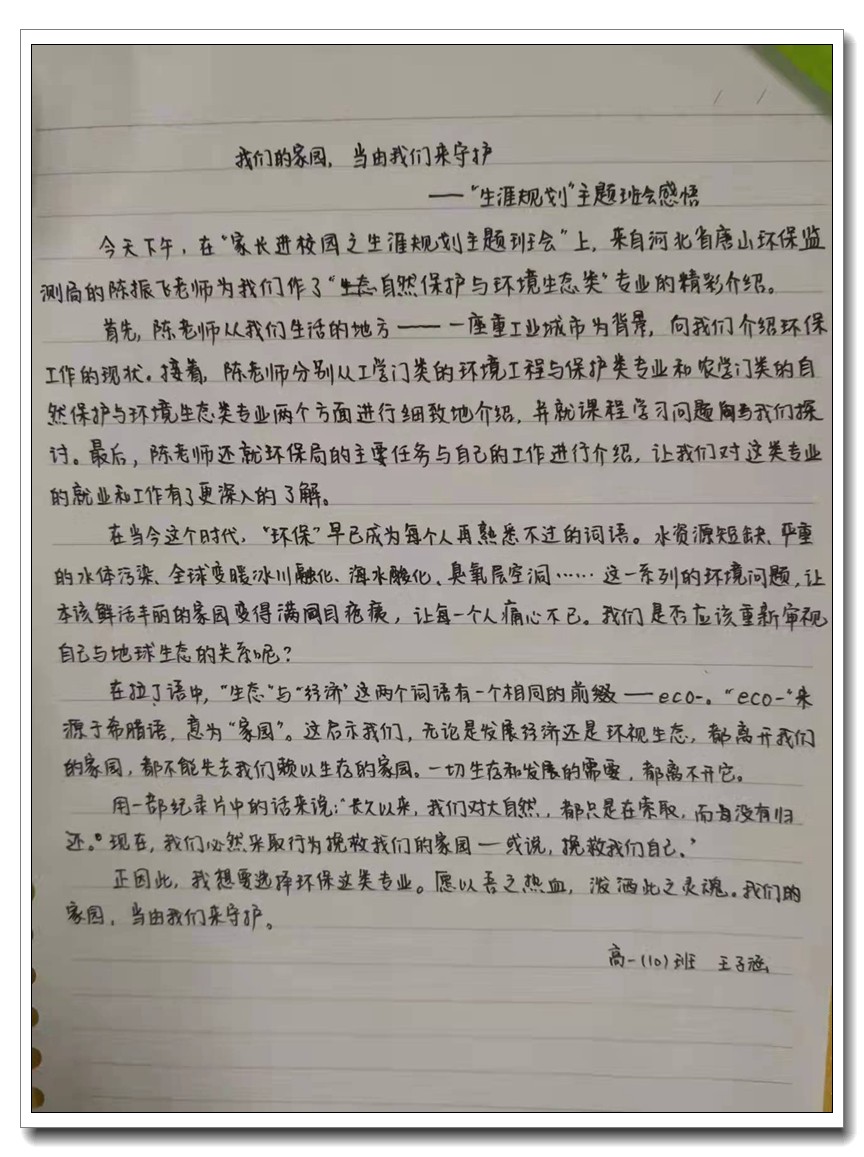 我们的家园，当由我们来守护
——“生涯规划”主题班会感悟
今天下午，在“家长进校园之生涯规划主题班会”上，来自河北省唐山环保监
测局的陈振飞老师为我们作了“生态自然保护与环境生态类”专业的精彩介绍。
首先，陈老师从我们生活的地方——一座重工业城市为背景，向我们介绍环保
工作的现状。接着，陈老师分别从工学门类的环境工程与保护类专业和农学门类的自
然保护与环境生态类专业两个方面进行细致地介绍，并就课程学习问题与我们探
讨。最后，陈老师还就环保局的主要任务与自己的工作进行介绍，让我们对这类专业
的就业和工作有了更深入的了解。
在当今这个时代，“环保”早已成为每个人再熟悉不过的词语。水资源短缺、严重
的水体污染、全球变暖冰川融化、海水酸化、臭氧层空洞……这一系列的环境问题，让
本该鲜活丰丽的家园变得满目疮痍，让每一个人痛心不已。我们是否应该重新审视
自己与地球生态的关系呢？
在拉丁语中，“生态”与“经济”这两个词语有一个相同的前缀——eco-。“eco-”来
源于希腊语，意为“家园”。这启示我们，无论是发展经济还是环视生态，都离开我们
的家园，都不能失去我们赖以生存的家园。一切生存和发展的需要，都离不开它。
用一部纪录片中的话来说：“长久以来，我们对大自然，都只是在索取，而没有归
还。”现在，我们必然采取行为挽救我们的家园—或说，挽救我们自己。’
正因此，我想要选择环保这类专业。愿以吾之热血，泼洒此之灵魂。我们的
家园，当由我们来守护。
高一（10）班 王子涵